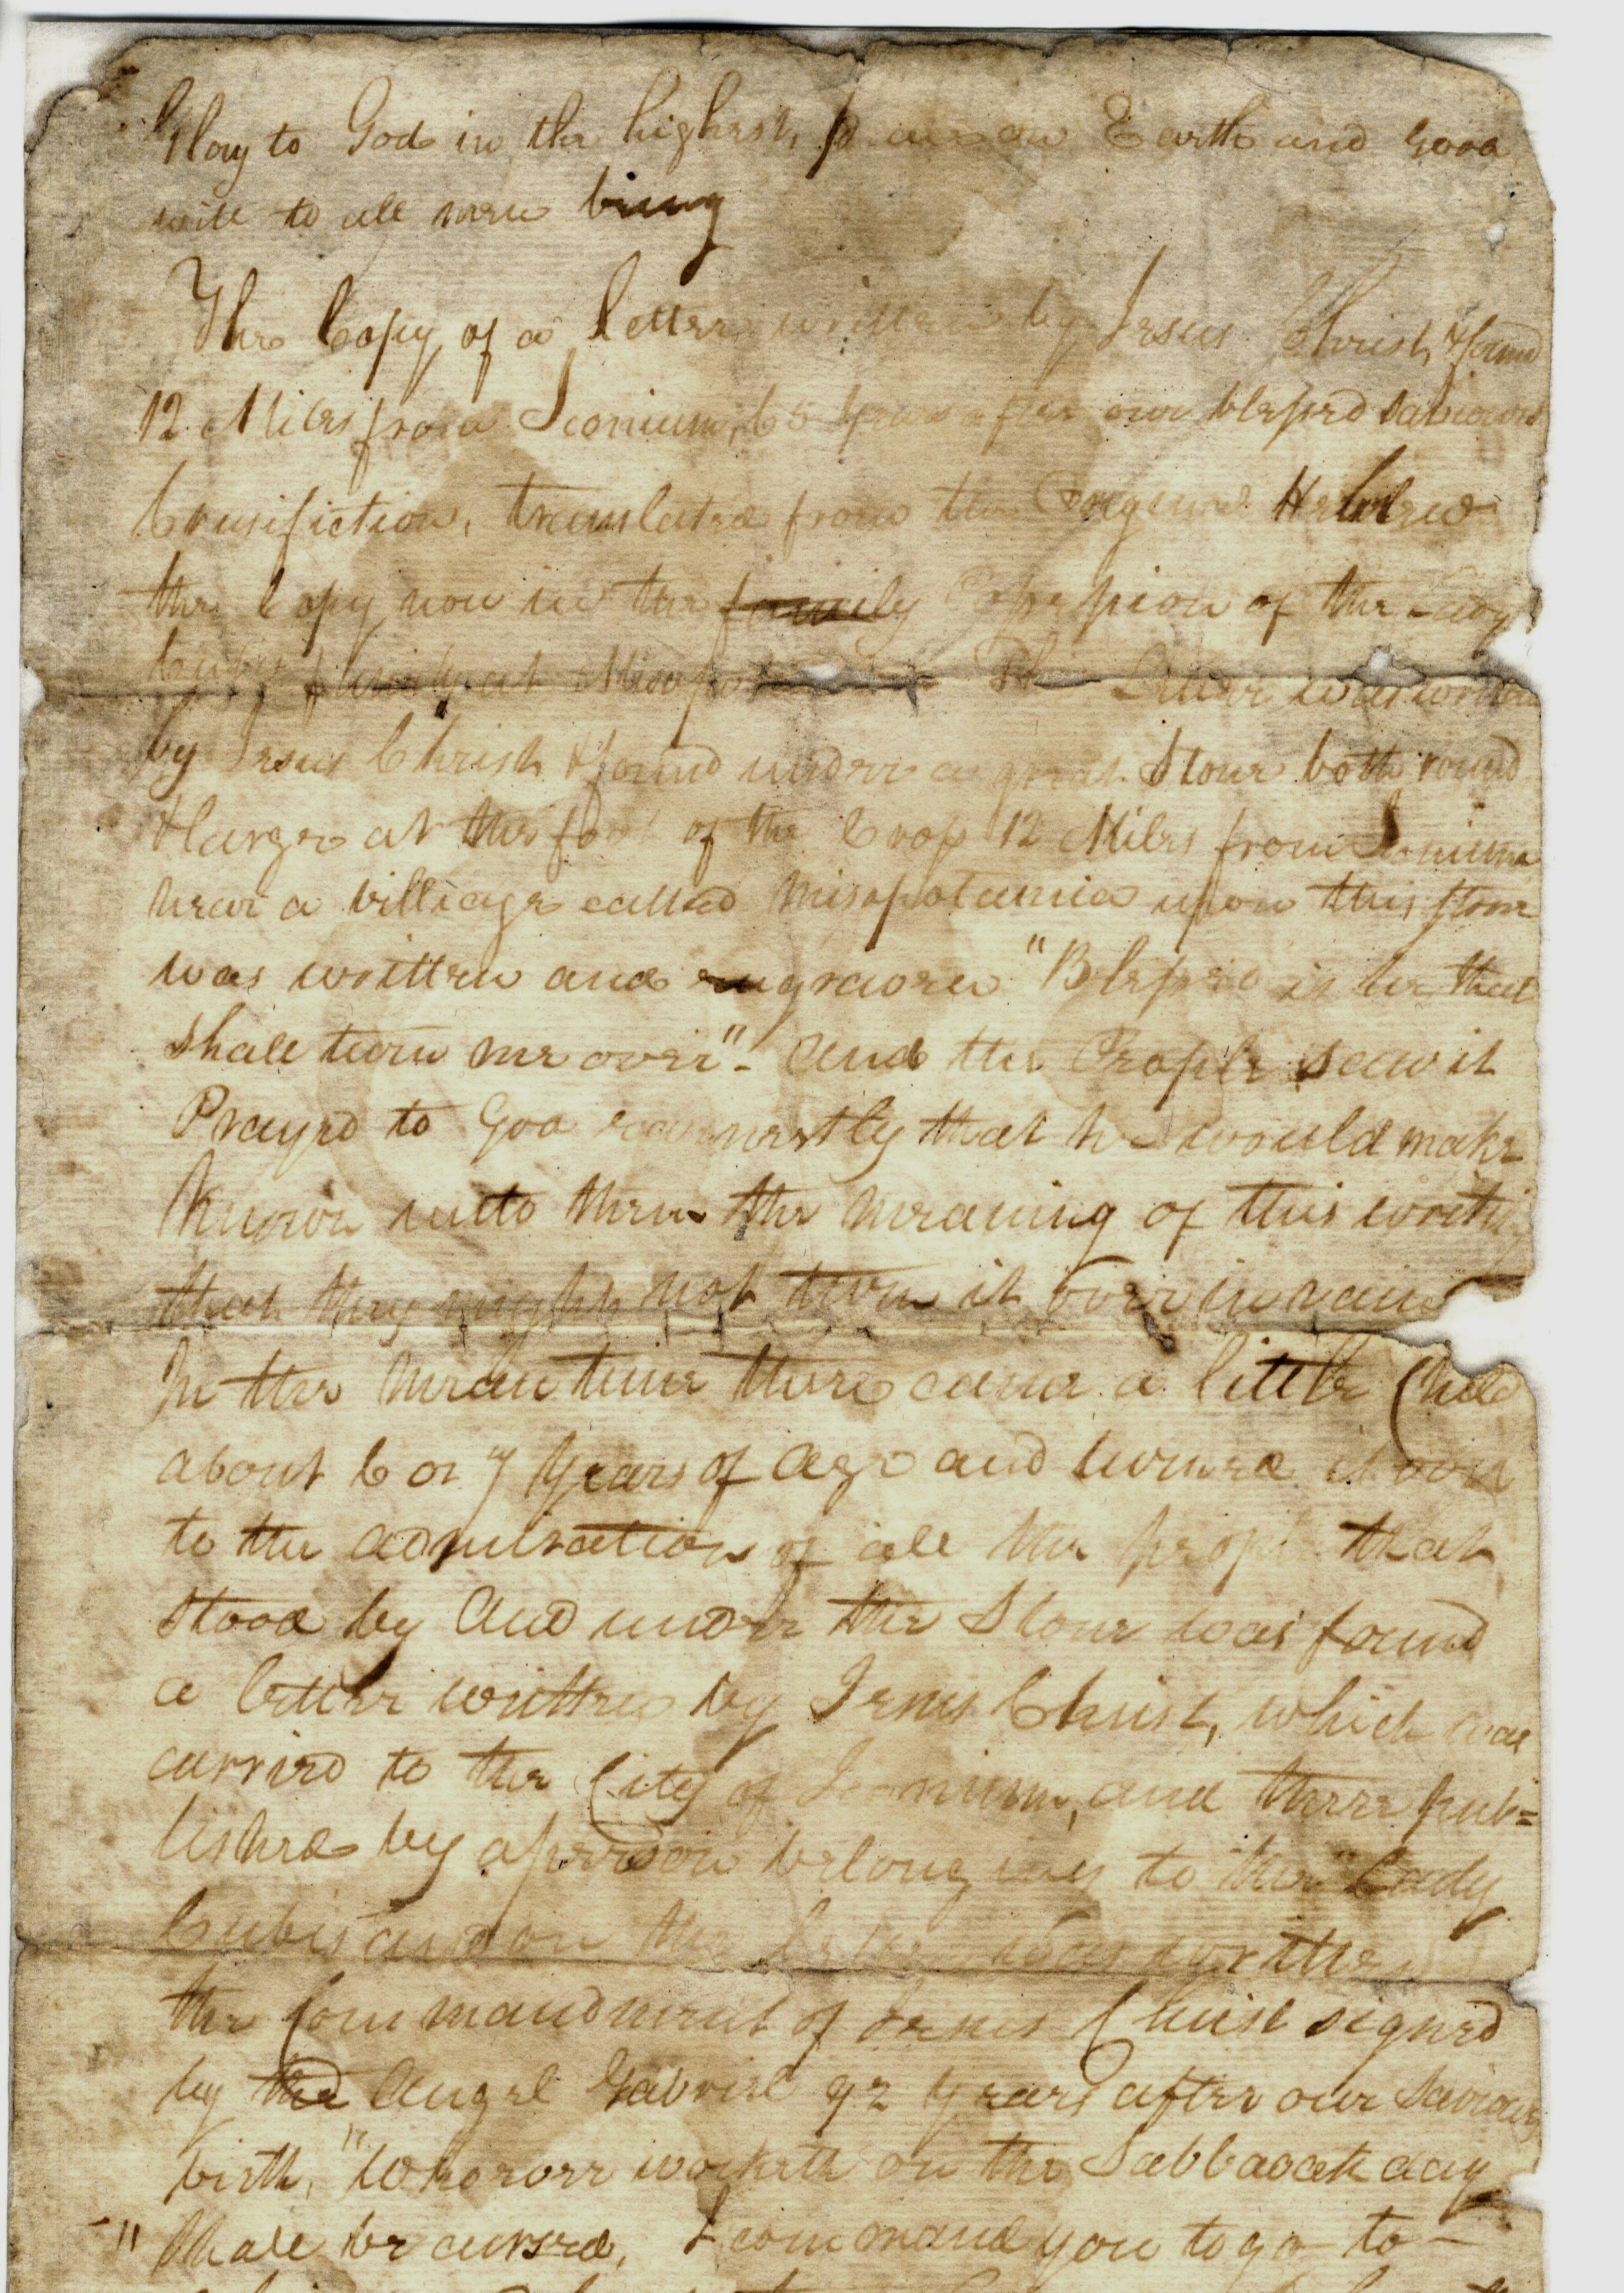 Glory to God in the highest, peace on Earth and good
will to all men being
The Copy of a letter written by Jesus Christ, & found
12 Miles from Iconium, 65 years after our blessed Saviours
Crusifiction, translated from the Hebrew
the Copy now in the family Possession of the Lady
Letter was
by Jesus Christ & found under a great Stone both round
& large at the foot of the Cross 12 Miles from Iconium
near a villiage called Misopotamia upon this stone
was written and engraven "Blessed is he that
shall turn me over"- And the People saw it
Prayed to God earnestly that he would make
known unto them the meaning of this writing
that they might not turn it over in vain
In the mean time there came a little Child
about 6 or 7 Years of Age and turned it over
to the admiration of all the people that
stood by And under the Stone was found
a letter written by Jesus Christ, which was
carried to the City of Iconium, and there pub=
lished by a person belonging to the Lady
Cubis and on the Letter was written
the Commandment of Jesus Christ signed
by the Angel Gabriel 92 Years after our Saviours
birth, "Whoever worketh on the Sabbaoath day
" Shall be cursed, I command you to go to